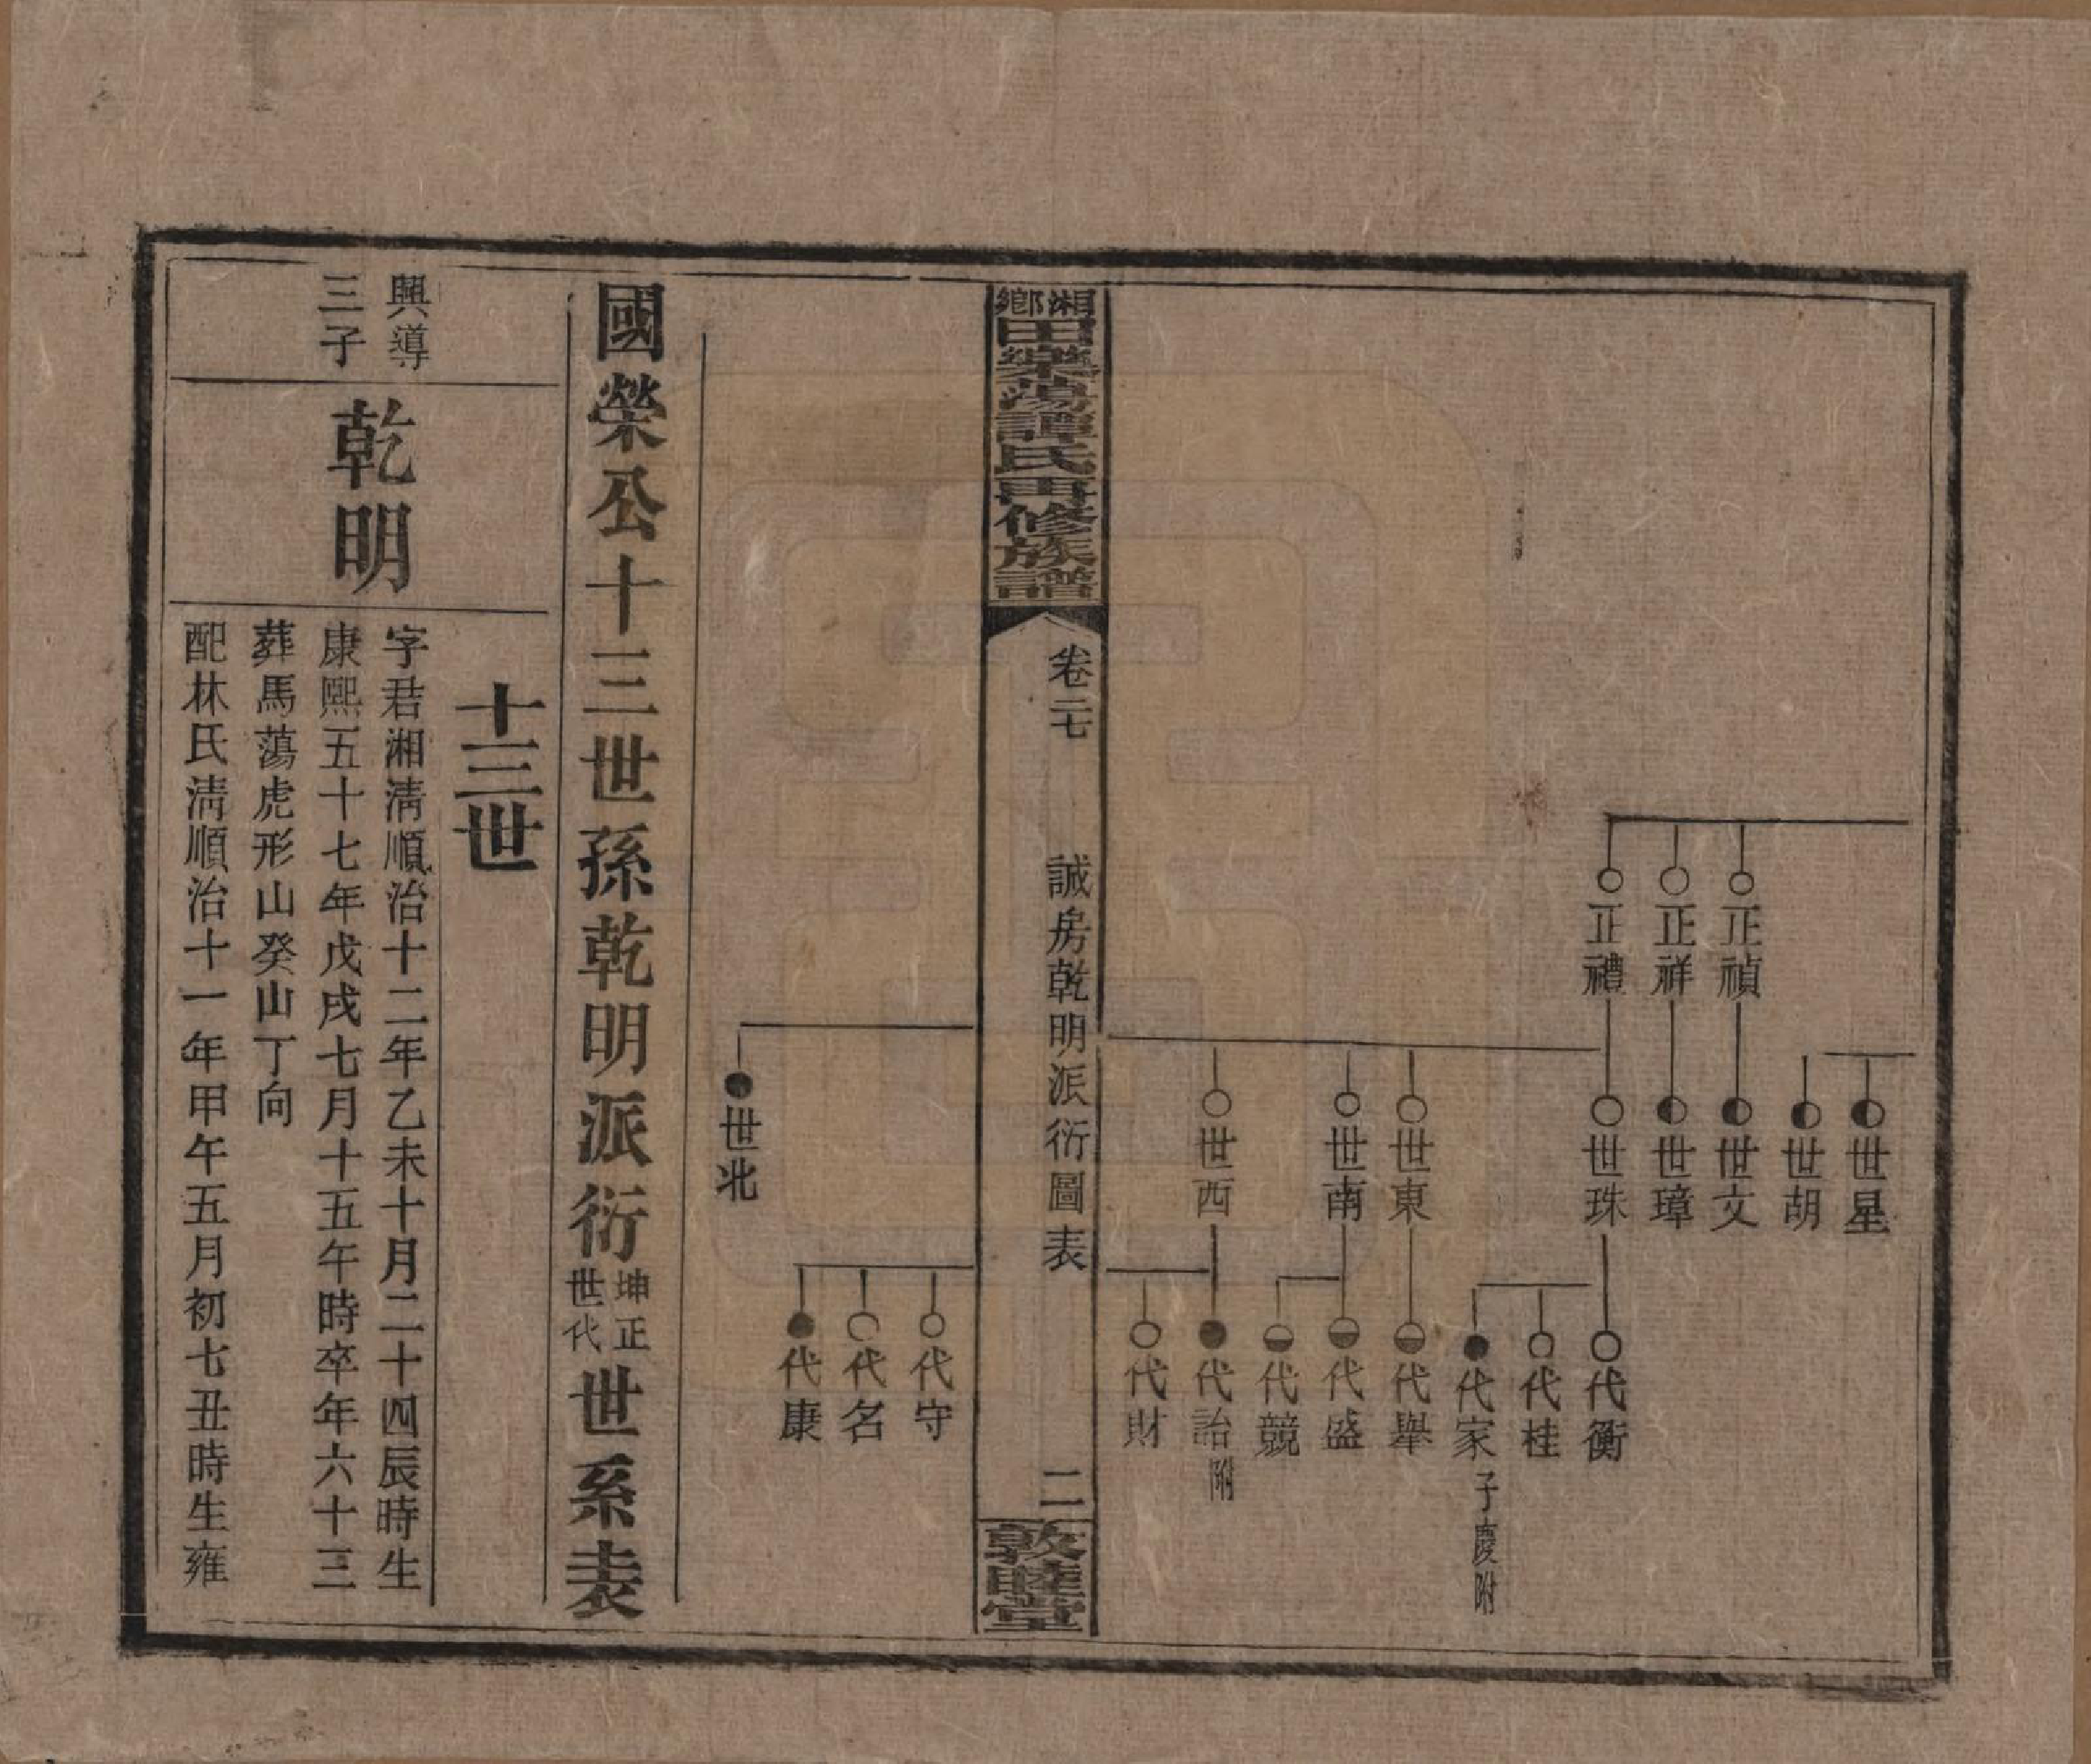 正禎
正祥
正禮
世星
世胡
世文
世璋
世珠
世東
世南
世西
代衡
代桂
代家子慶附
代舉
代盛
代競
代詒附
代財
湘鄉田樂蕩譚氏再修族譜
卷二七
誠房乾明派衍圖表
二
敦睦堂
世北
代守
代名
代康
國榮公十三世孫乾明派衍坤正世代世系表
十三世
興導
三子
乾明
字君湘淸順治十二年乙未十月二十四辰時生
康熙五十七年戊戌七月十五午時卒年六十三
葬馬蕩虎形山癸山丁向
配林氏淸順治十一年甲午五月初七丑時生雍